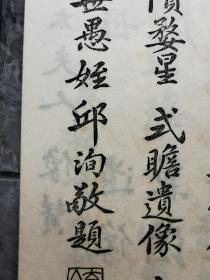 婺星 式瞻遺像
愚姪邱洵敬題